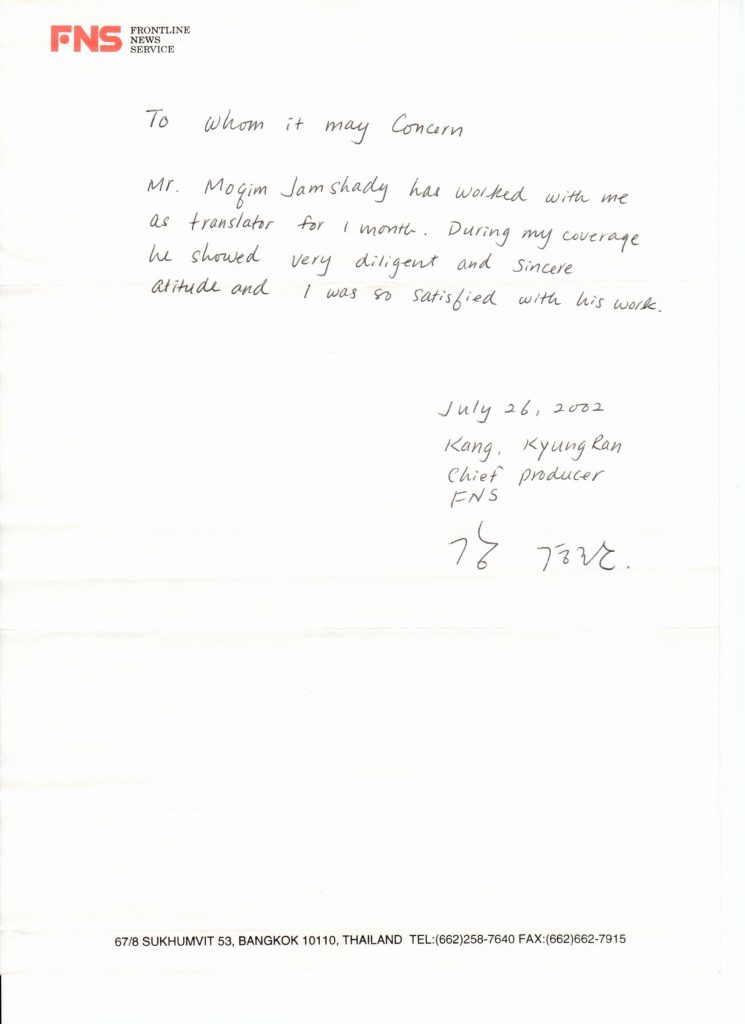 FNS
FRONTLINE
NEWS
SERVICE
To whom it may Concern
Mr. Moqim Jamshady has worked with me
as translator for 1 month. During my coverage
he showed very diligent and sincere
atitude and I was so satisfied with his work.
July 26, 2002
Kang, KyungRan
Chief producer
FNS
강 경란.
67/8 SUKHUMVIT 53, BANGKOK 10110, THAILAND TEL:(662)258-7640 FAX:(662)662-7915